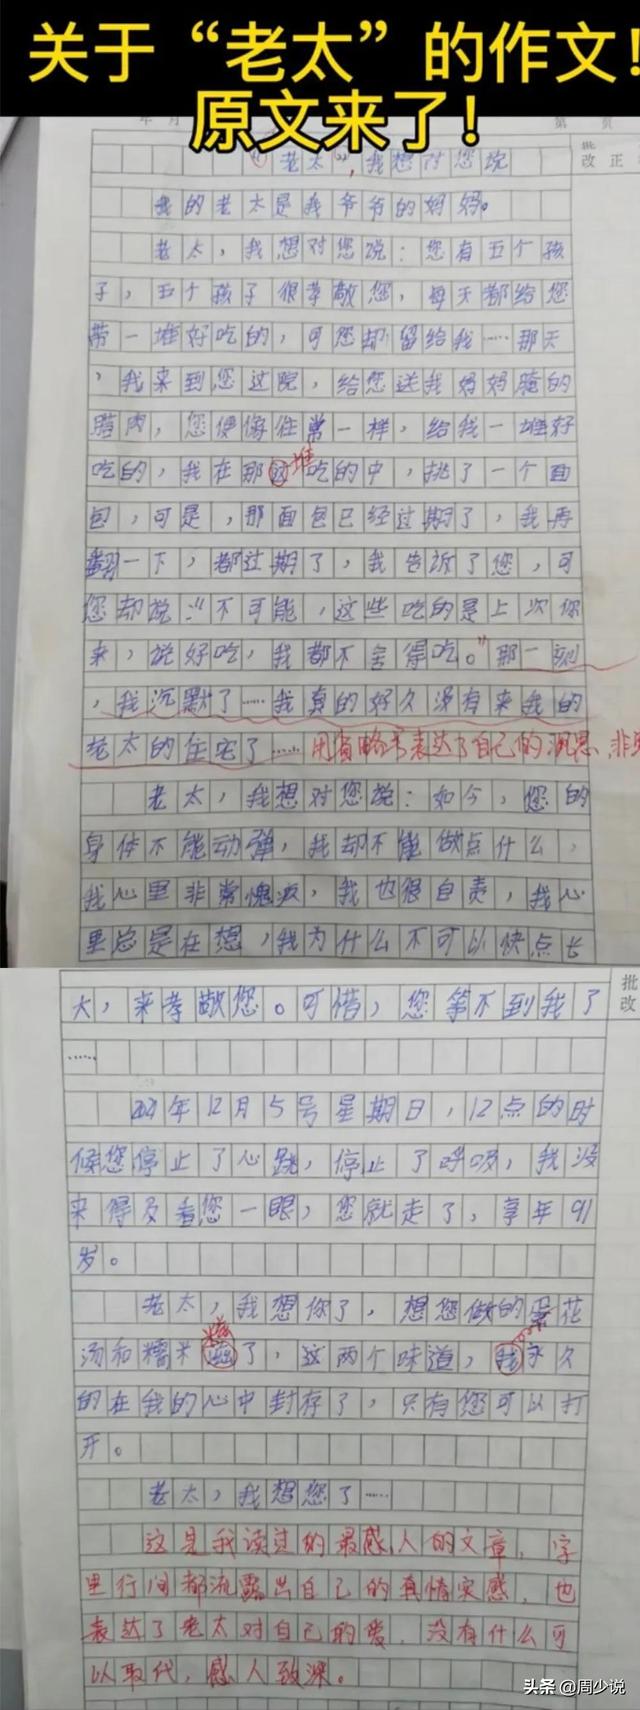 关于“老太”的作文！
原文来了！
年 月
第 页
批
改 正
“老太”，我想对您说
我的老太是我爷爷的妈妈。
老太，我想对您说：您有五个孩
子，五个孩子很孝敬您，每天都给您
带一堆好吃的，可您却留给我……那天
，我来到您这院，给您送我妈妈腌的
腊肉，您便像往常一样，给我一堆好
吃的，我在那堆吃的中，挑了一个面
包，可是，那面包已经过期了，我再
翻一下，都过期了，我告诉了您，可
您却说：“不可能，这些吃的是上次你
来，说好吃，我都不舍得吃。”那一刻
，我沉默了……我真的好久没有来我的
老太的住宅了……用省略号表达了自己的沉思，非
老太，我想对您说：如今，您的
身体不能动弹，我却不能做点什么，
我心里非常愧疚，我也很自责，我心
里总是在想，我为什么不可以快点长
批
改
大，来孝敬您。可惜，您等不到我了
……
2021年12月5号星期日，12点的时
候您停止了心跳，停止了呼吸，我没
来得及看您一眼，您就走了，享年91
岁。
老太，我想你了，想您做的蛋花
汤和糯米了，这两个味道，我永久
的在我的心中封存了，只有您可以打
开。
老太，我想您了……
这是我读过的最感人的文章，字
里行间都流露出自己的真情实感，也
表达了老太对自己的爱，没有什么可
以取代，感人致深。
头条 @周少说